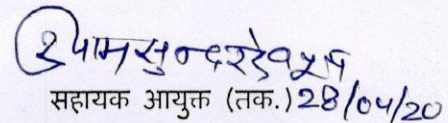 श्यामसुन्दर
सहायक आयुक्त (तक.) 28/04/20